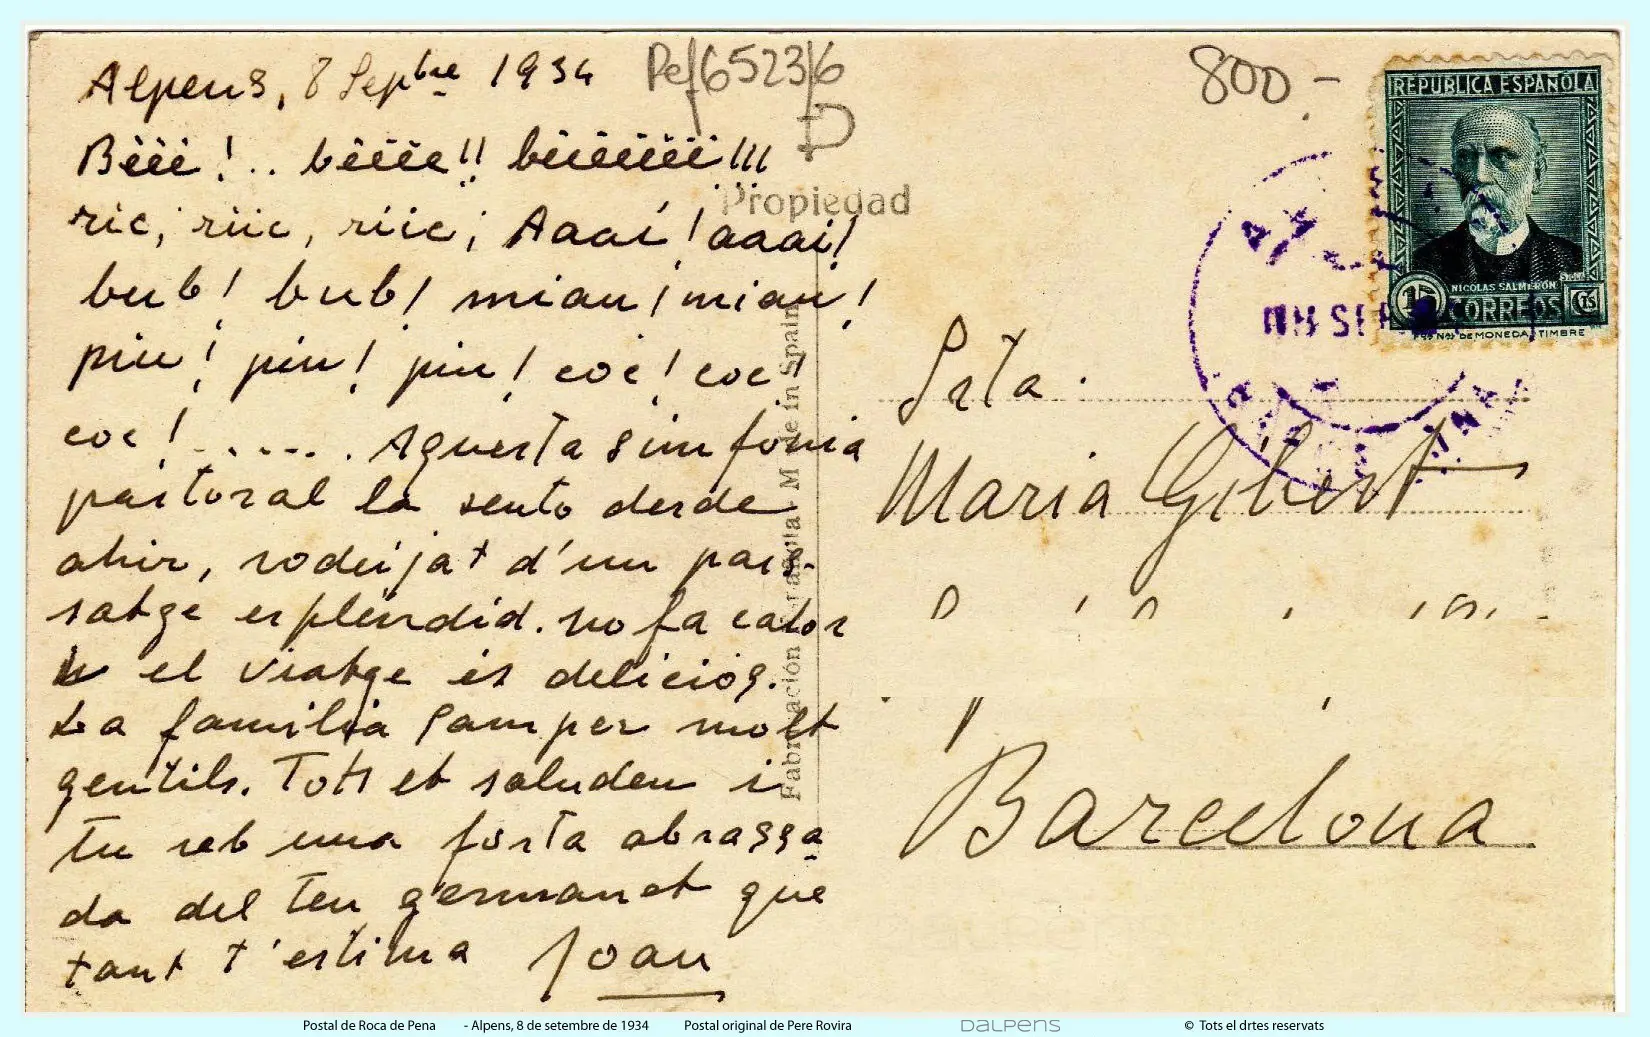 Alpens, 8 Sepbre 1934
Ref 6523/6
800.-
Bèèè!.. bèèèe!! bèeèèèè!!!
ric, riic, riic; Aaaí! aaai!
bub! bub! miau! miau!
piu! piu! piu! coc! coc!
coc!...... Aquesta simfonia
pastoral la sento desde
ahir, rodeijat d'un pais-
satge esplèndid. no fa calor
el viatge es deliciós.
La familia Samper molt
gentils. Tots et saluden i
tu reb una forta abrassa-
da del teu germanet que
tant t'estima Joan
Propiedad
Fabricación
Made in Spain
Srta.
Maria Gibert
Barcelona
REPUBLICA ESPAÑOLA
NICOLAS SALMERON
15 CORREOS Cts
Fca Nal DE MONEDA Y TIMBRE
SEP
Postal de Roca de Pena - Alpens, 8 de setembre de 1934 Postal original de Pere Rovira DALPENS © Tots el drtes reservats